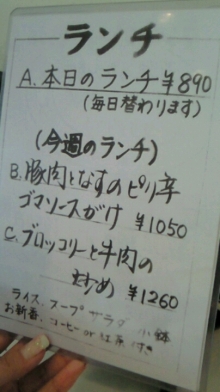 ランチ
A. 本日のランチ ¥890
(毎日替わります)
(今週のランチ)
B. 豚肉となすのピリ辛
ゴマソースがけ ¥1050
C. ブロッコリーと牛肉の
炒め ¥1260
ライス、スープ サラダ 小鉢
お新香、コーヒー or 紅茶 付き